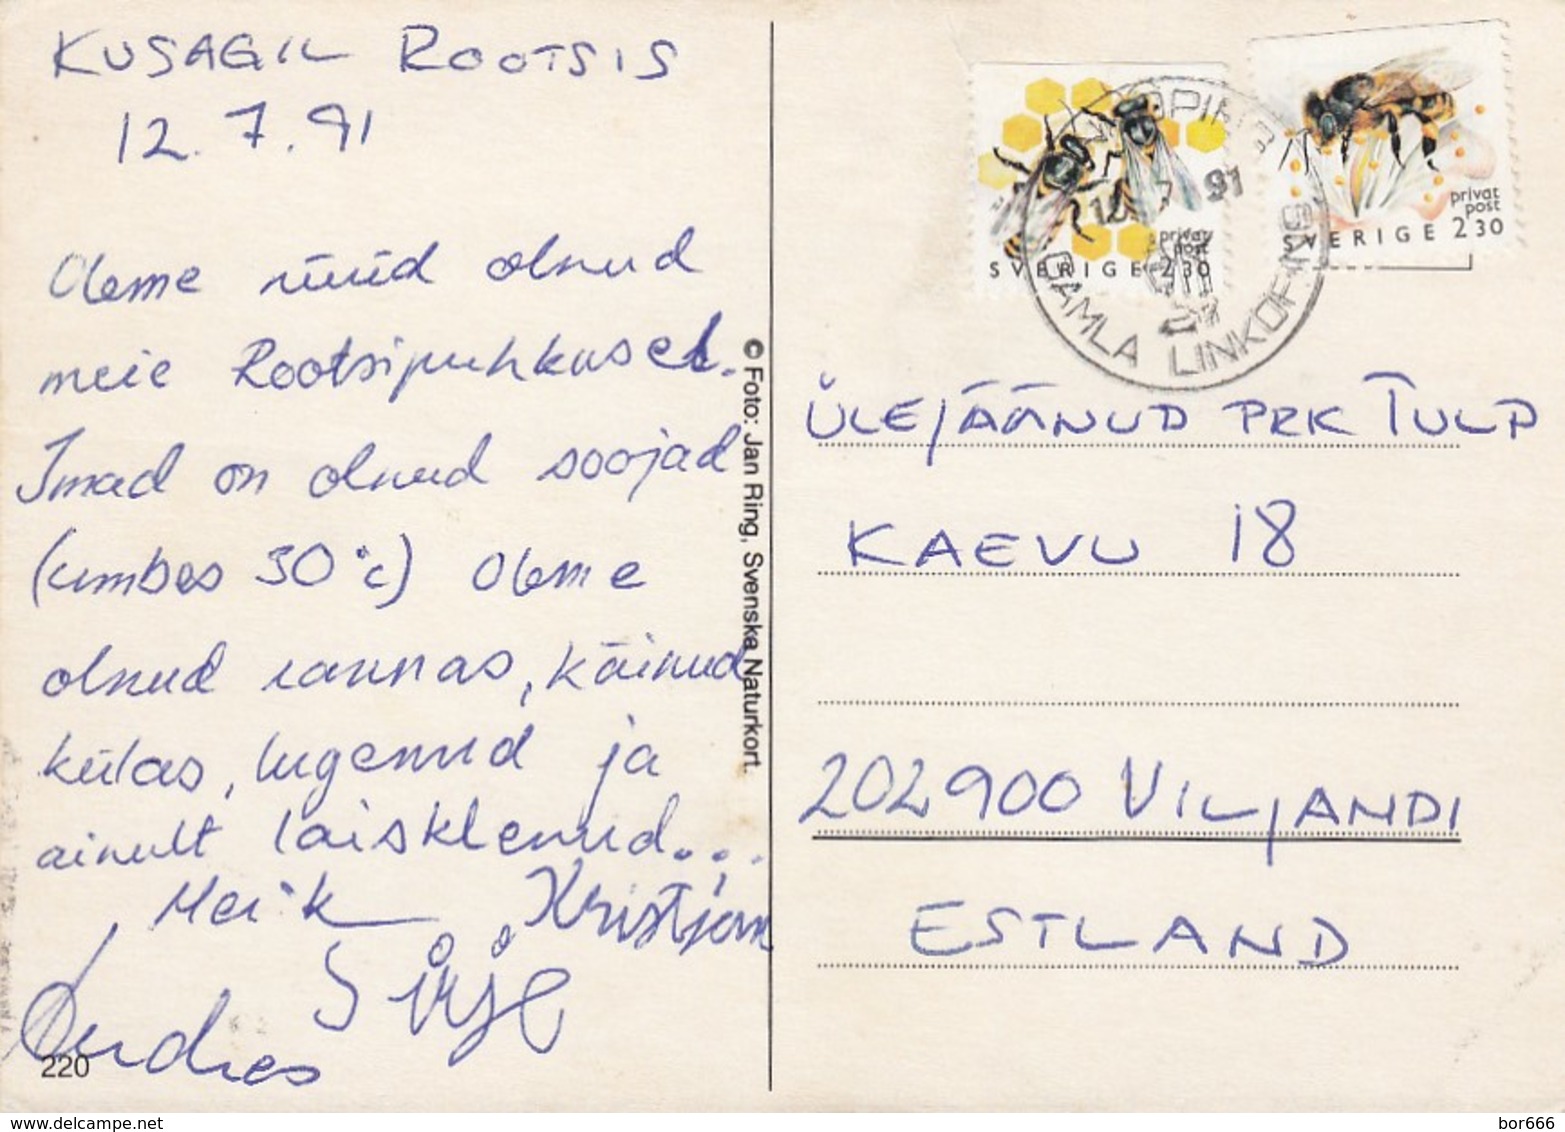 KUSAGIL ROOTSIS
12.7.91
Oleme nüüd olnud
meie Rootsipuhkusel.
Ilmad on olnud soojad
(umbes 30°c) Oleme
olnud rannas, käinud
külas, lugenud ja
ainult laisklenud...
Meik, Kristjan
Sirje
Andres
220
© Foto: Jan Ring, Svenska Naturkort.
privat
post
SVERIGE 2 30
privat
post
SVERIGE 2 30
LINKÖPING 1
7 91
GAMLA LINKÖPING
ÜLEJÄÄNUD PRK TULP
KAEVU 18
202900 VILJANDI
ESTLAND
delcampe.net
bor666